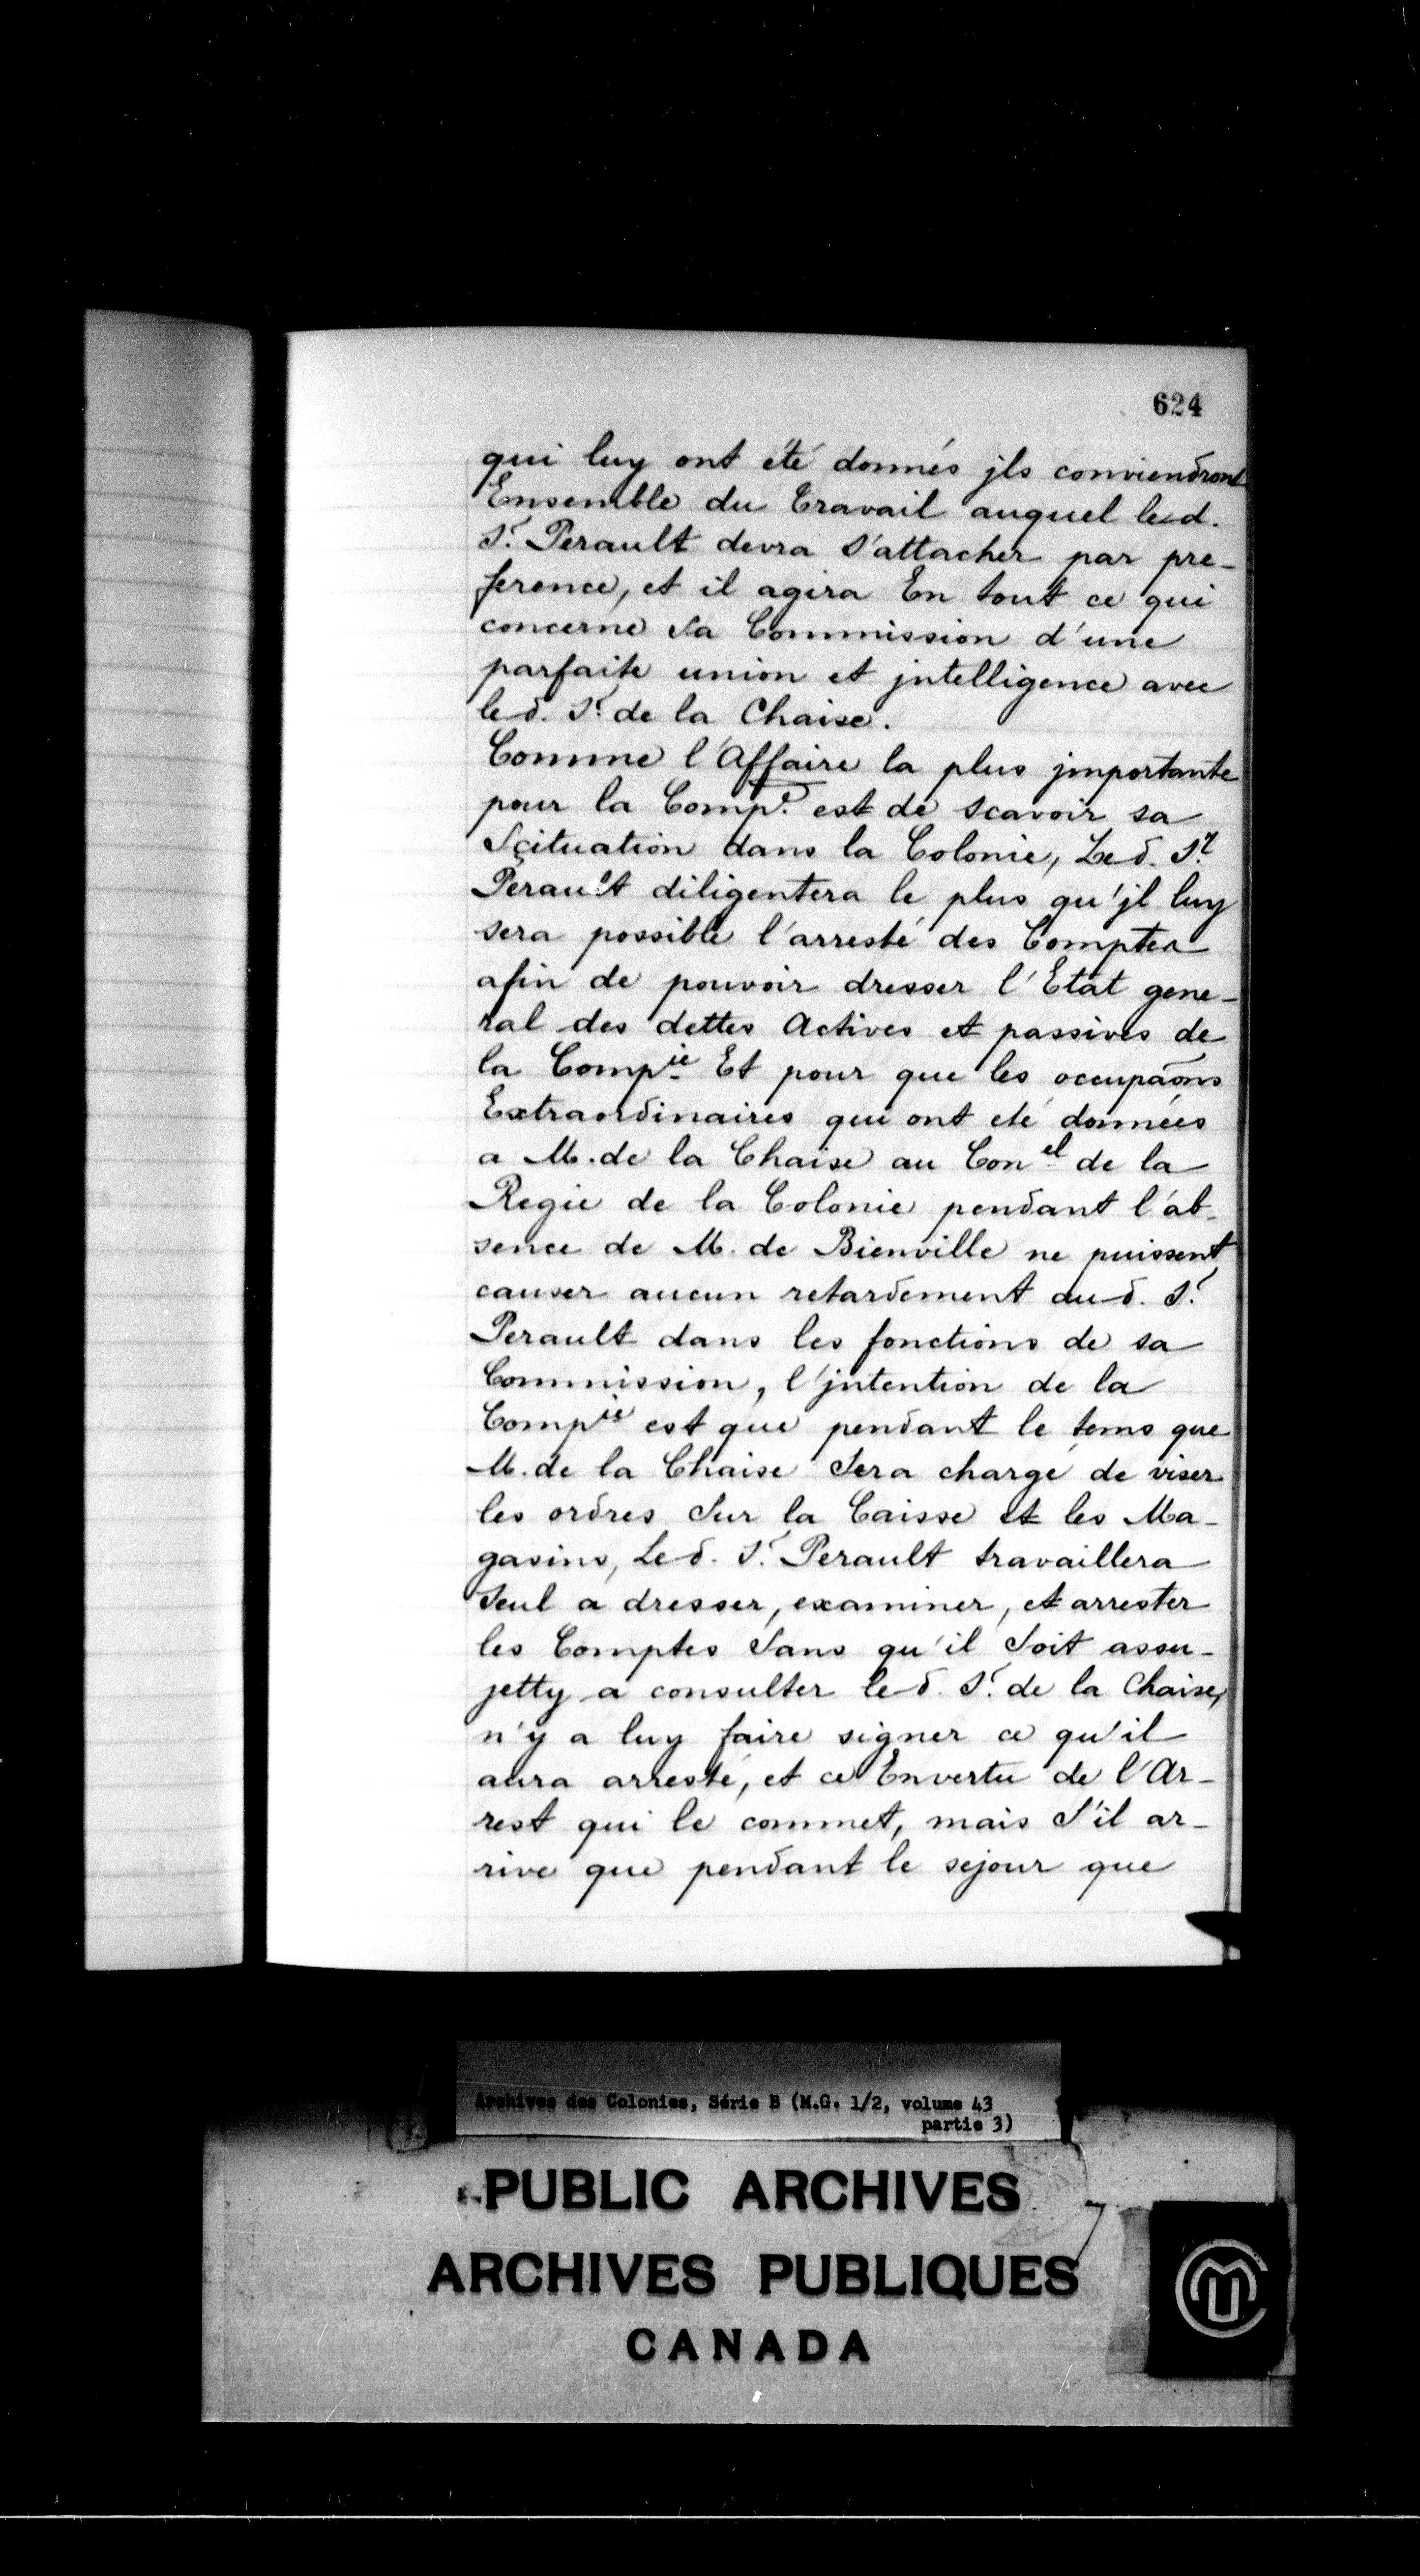 624
qui luy ont été donnés jls conviendront
Ensemble du travail auquel led.
Sr. Perault devra s'attacher par pre-
ference, et il agira En tout ce qui
concerne sa Commission d'une
parfaite union et jntelligence avec
led. Sr. de la Chaise.
Comme l'Affaire la plus jmportante
pour la Compe. est de scavoir sa
Sçituation dans la Colonie, Led. Sr.
Perault diligentera le plus qu'jl luy
sera possible l'arresté des Comptes
afin de pouvoir dresser l'Etat gene-
ral des dettes Actives et passives de
la Compie Et pour que les occupaõns
Extraordinaires qui ont eté données
a M. de la Chaise au Conel de la
Regie de la Colonie pendant l'ab-
sence de M. de Bienville ne puissent
causer aucun retardement aud. Sr.
Perault dans les fonctions de sa
Commission, l'jntention de la
Compie est que pendant le tems que
M. de la Chaise sera chargé de viser
les ordres sur la Caisse et les Ma-
gasins, Led. Sr. Perault travaillera
Seul a dresser, examiner, et arrester
les Comptes sans qu'il soit assu-
jetty a consulter led. Sr. de la Chaise,
n'y a luy faire signer ce qu'il
aura arresté, et ce Envertu de l'Ar-
rest qui le commet, mais s'il ar-
rive que pendant le sejour que
Archives des Colonies, Série B (M.G. 1/2, volume 43
partie 3)
PUBLIC ARCHIVES
ARCHIVES PUBLIQUES
CANADA